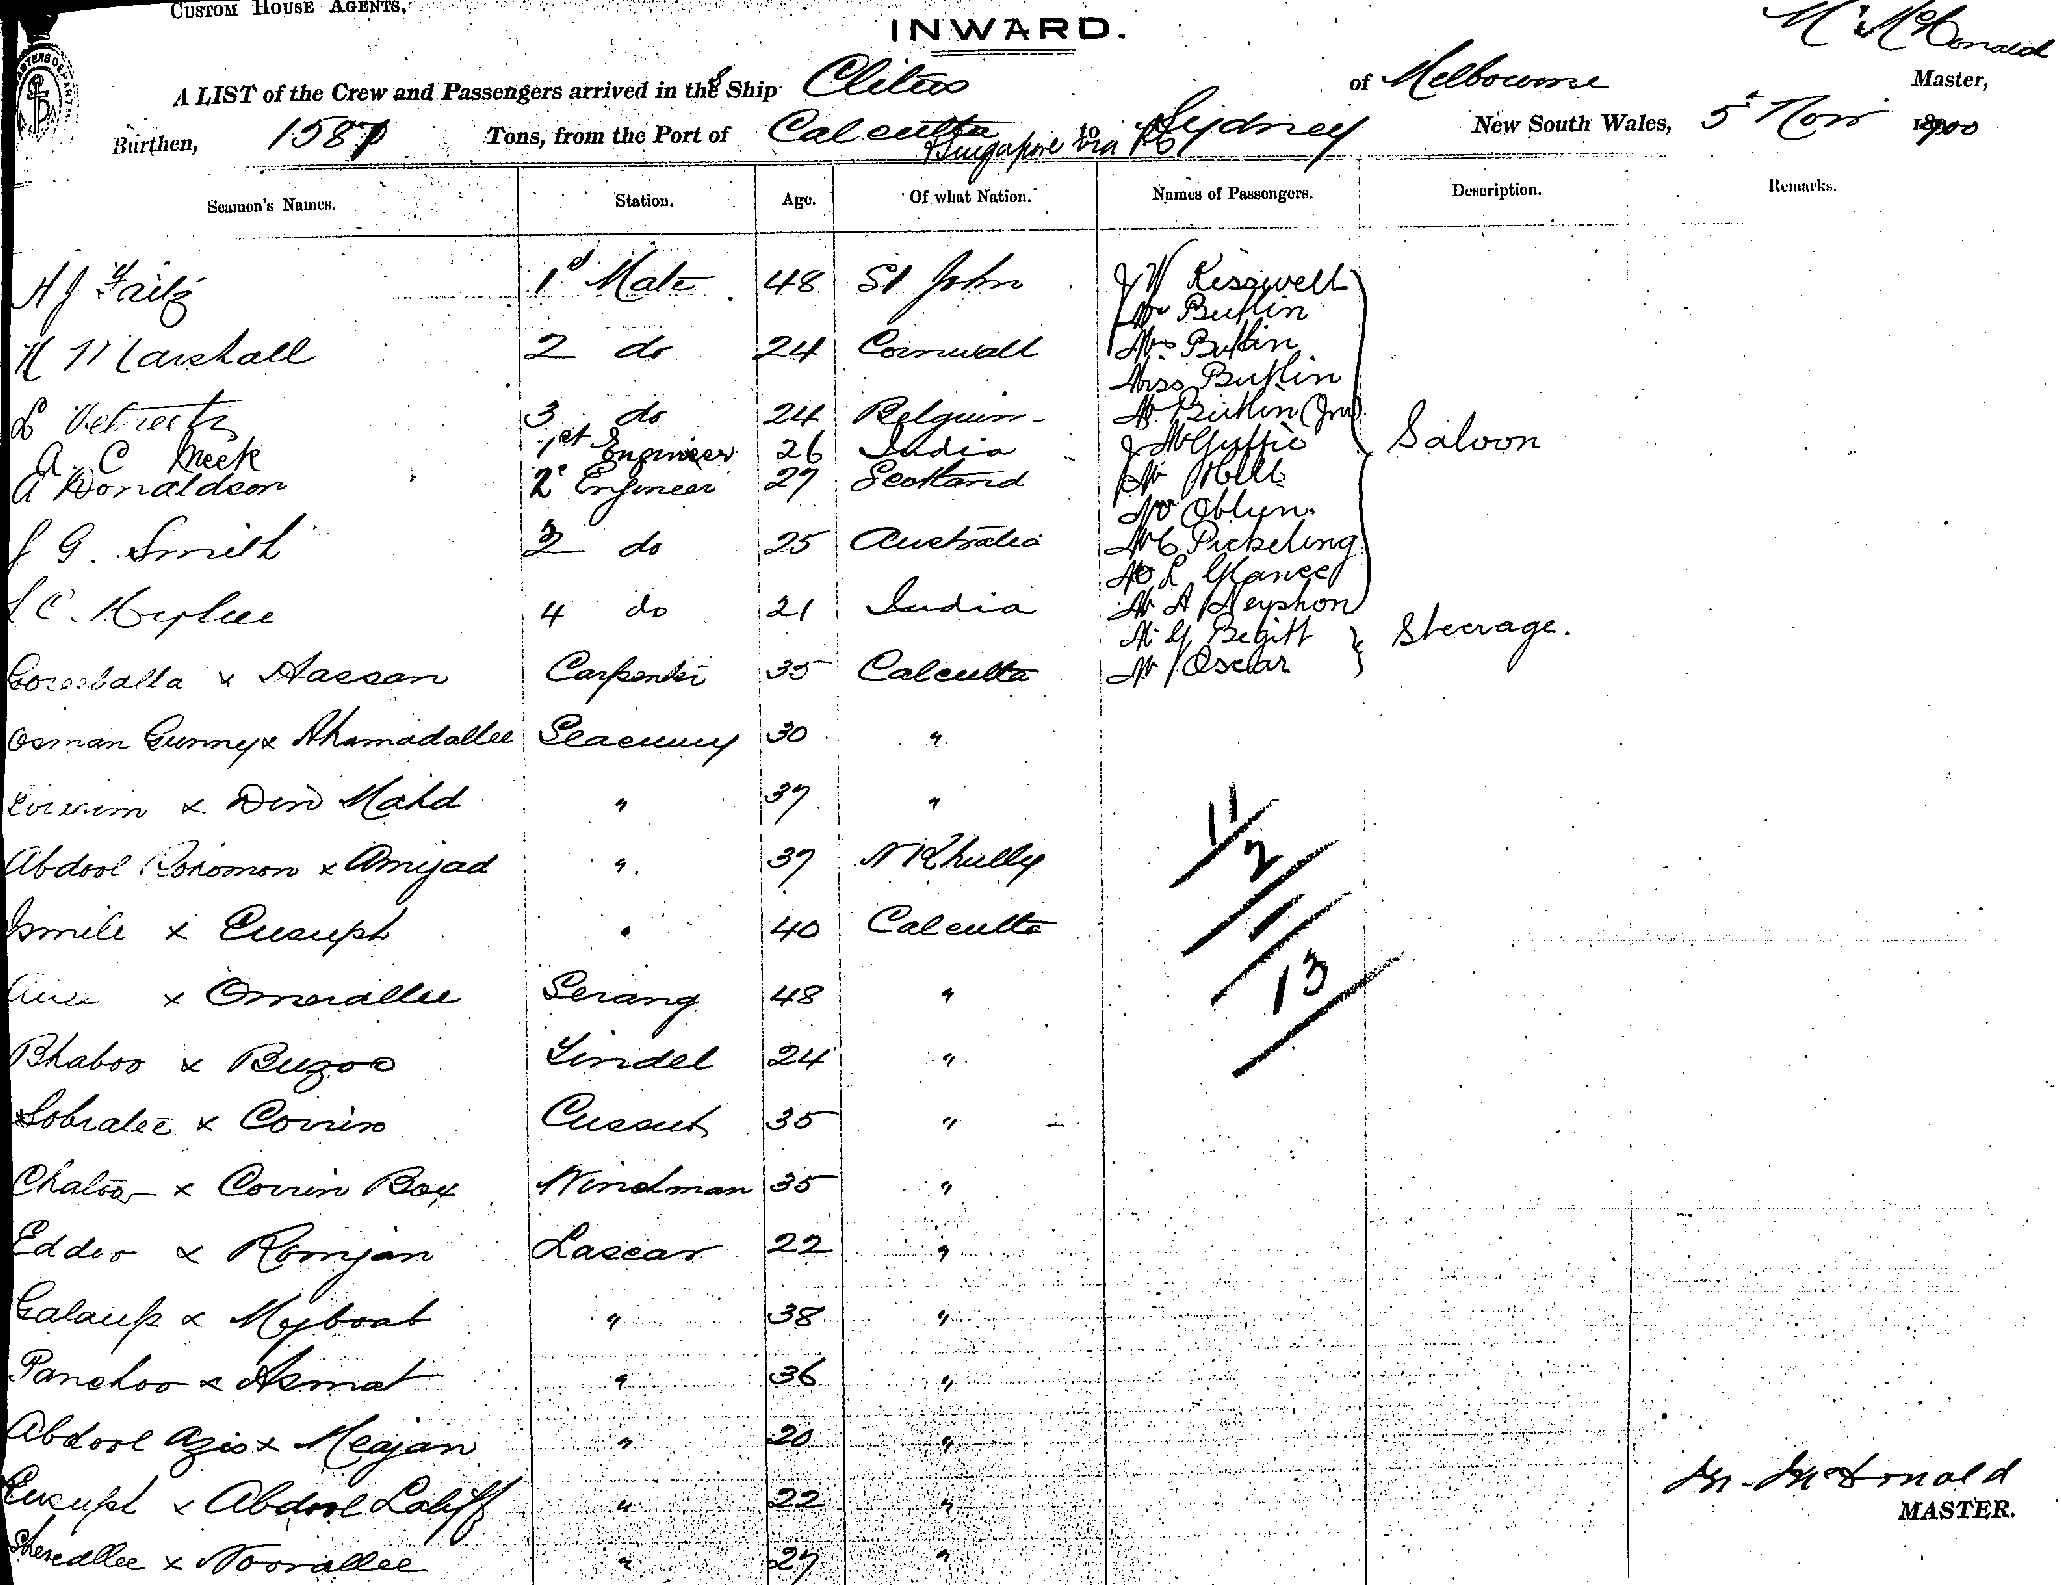 CUSTOM HOUSE AGENTS,
INWARD.
M McDonald
A LIST of the Crew and Passengers arrived in the Ship Clitus of Melbourne Master,
Burthen, 1587 Tons, from the Port of Calcutta to Sydney New South Wales, 5 Nov 1900
Singapore via
Seamen's Names. Station. Age. Of what Nation. Names of Passengers. Description. Remarks.
1st Mate 48 St John J W
A J Butlin
H Marshall 2 do 24 Cornwall Mrs Butlin
Miss Butlin
3 do 24 Belguim Mr Butlin (Jnr)
A C Meek 1st Engineer 26 India J McGuffie Saloon
A Donaldson 2 Engineer 27 Scotland Mr
Mr
J G. Smith 3 do 25 Australia Mr C Pickeling
Mr L Glance
C. 4 do 21 India Mr A
Mr G Steerage.
x Hassan Carpenter 35 Calcutta Mr Oscar
Osman Gunny x Ahamadallee Seacunny 30 "
x Din Mahd " 37 "
Abdool Rohomon x Amijad " 37 N Khully
Ismile x Eusuph " 40 Calcutta
x Omerallee Serang 48 "
Bhaboo x Buzoo Tindel 24 "
Sobratee x Corrim Cussub 35 "
Chatoo x Corrim Box Windman 35 "
Eddoo x Romjan Lascar 22 "
Galaup x Myboat " 38 "
Panchoo x Asmat " 36 "
Abdool Azis x Meajan " 20 "
Eusuph x Abdool Latiff " 22 "
Sheredllee x Noorallee " 27 "
11
2
13
M. McDonald
MASTER.